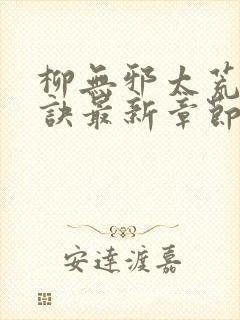 柳無邪太荒
訣最新章節
安達渡嘉